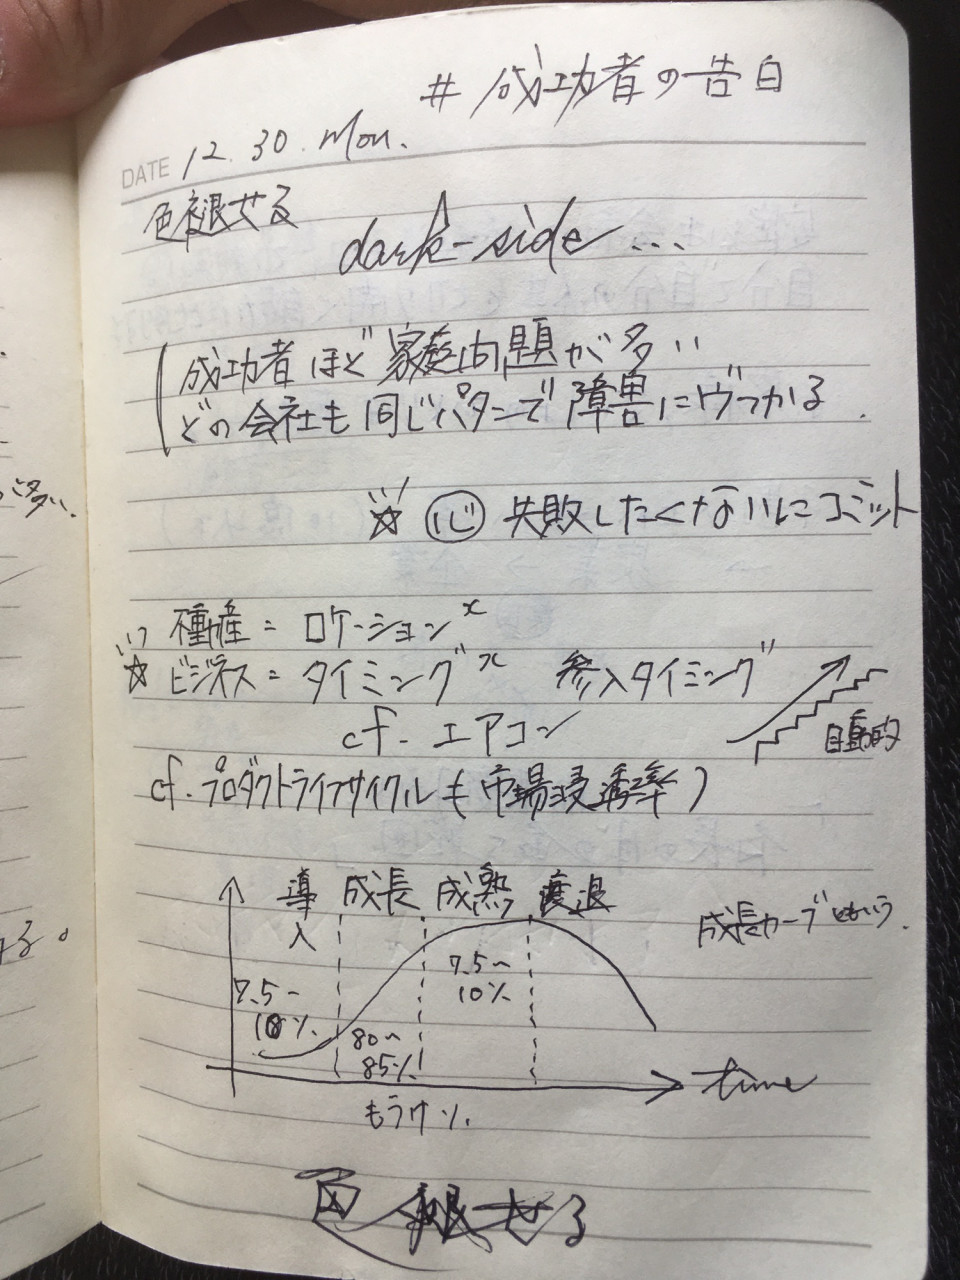 # 成功者の告白
DATE 12.30.Mon.
色褪せる
dark-side...
成功者ほど家庭問題が多い
どの会社も同じパタンで障害にヴつかる.
☆ 心 失敗したくないにコミット
不動産 = ロケーション
☆ ビジネス = タイミング 参入タイミング
自動的
cf. エアコン
cf. プロダクトライフサイクルも市場浸透率)
導入 成長 成熟 衰退
成長カーブともいう.
7.5〜10%
80〜85%
7.5〜10%
time
もうけ%
多い.
る。